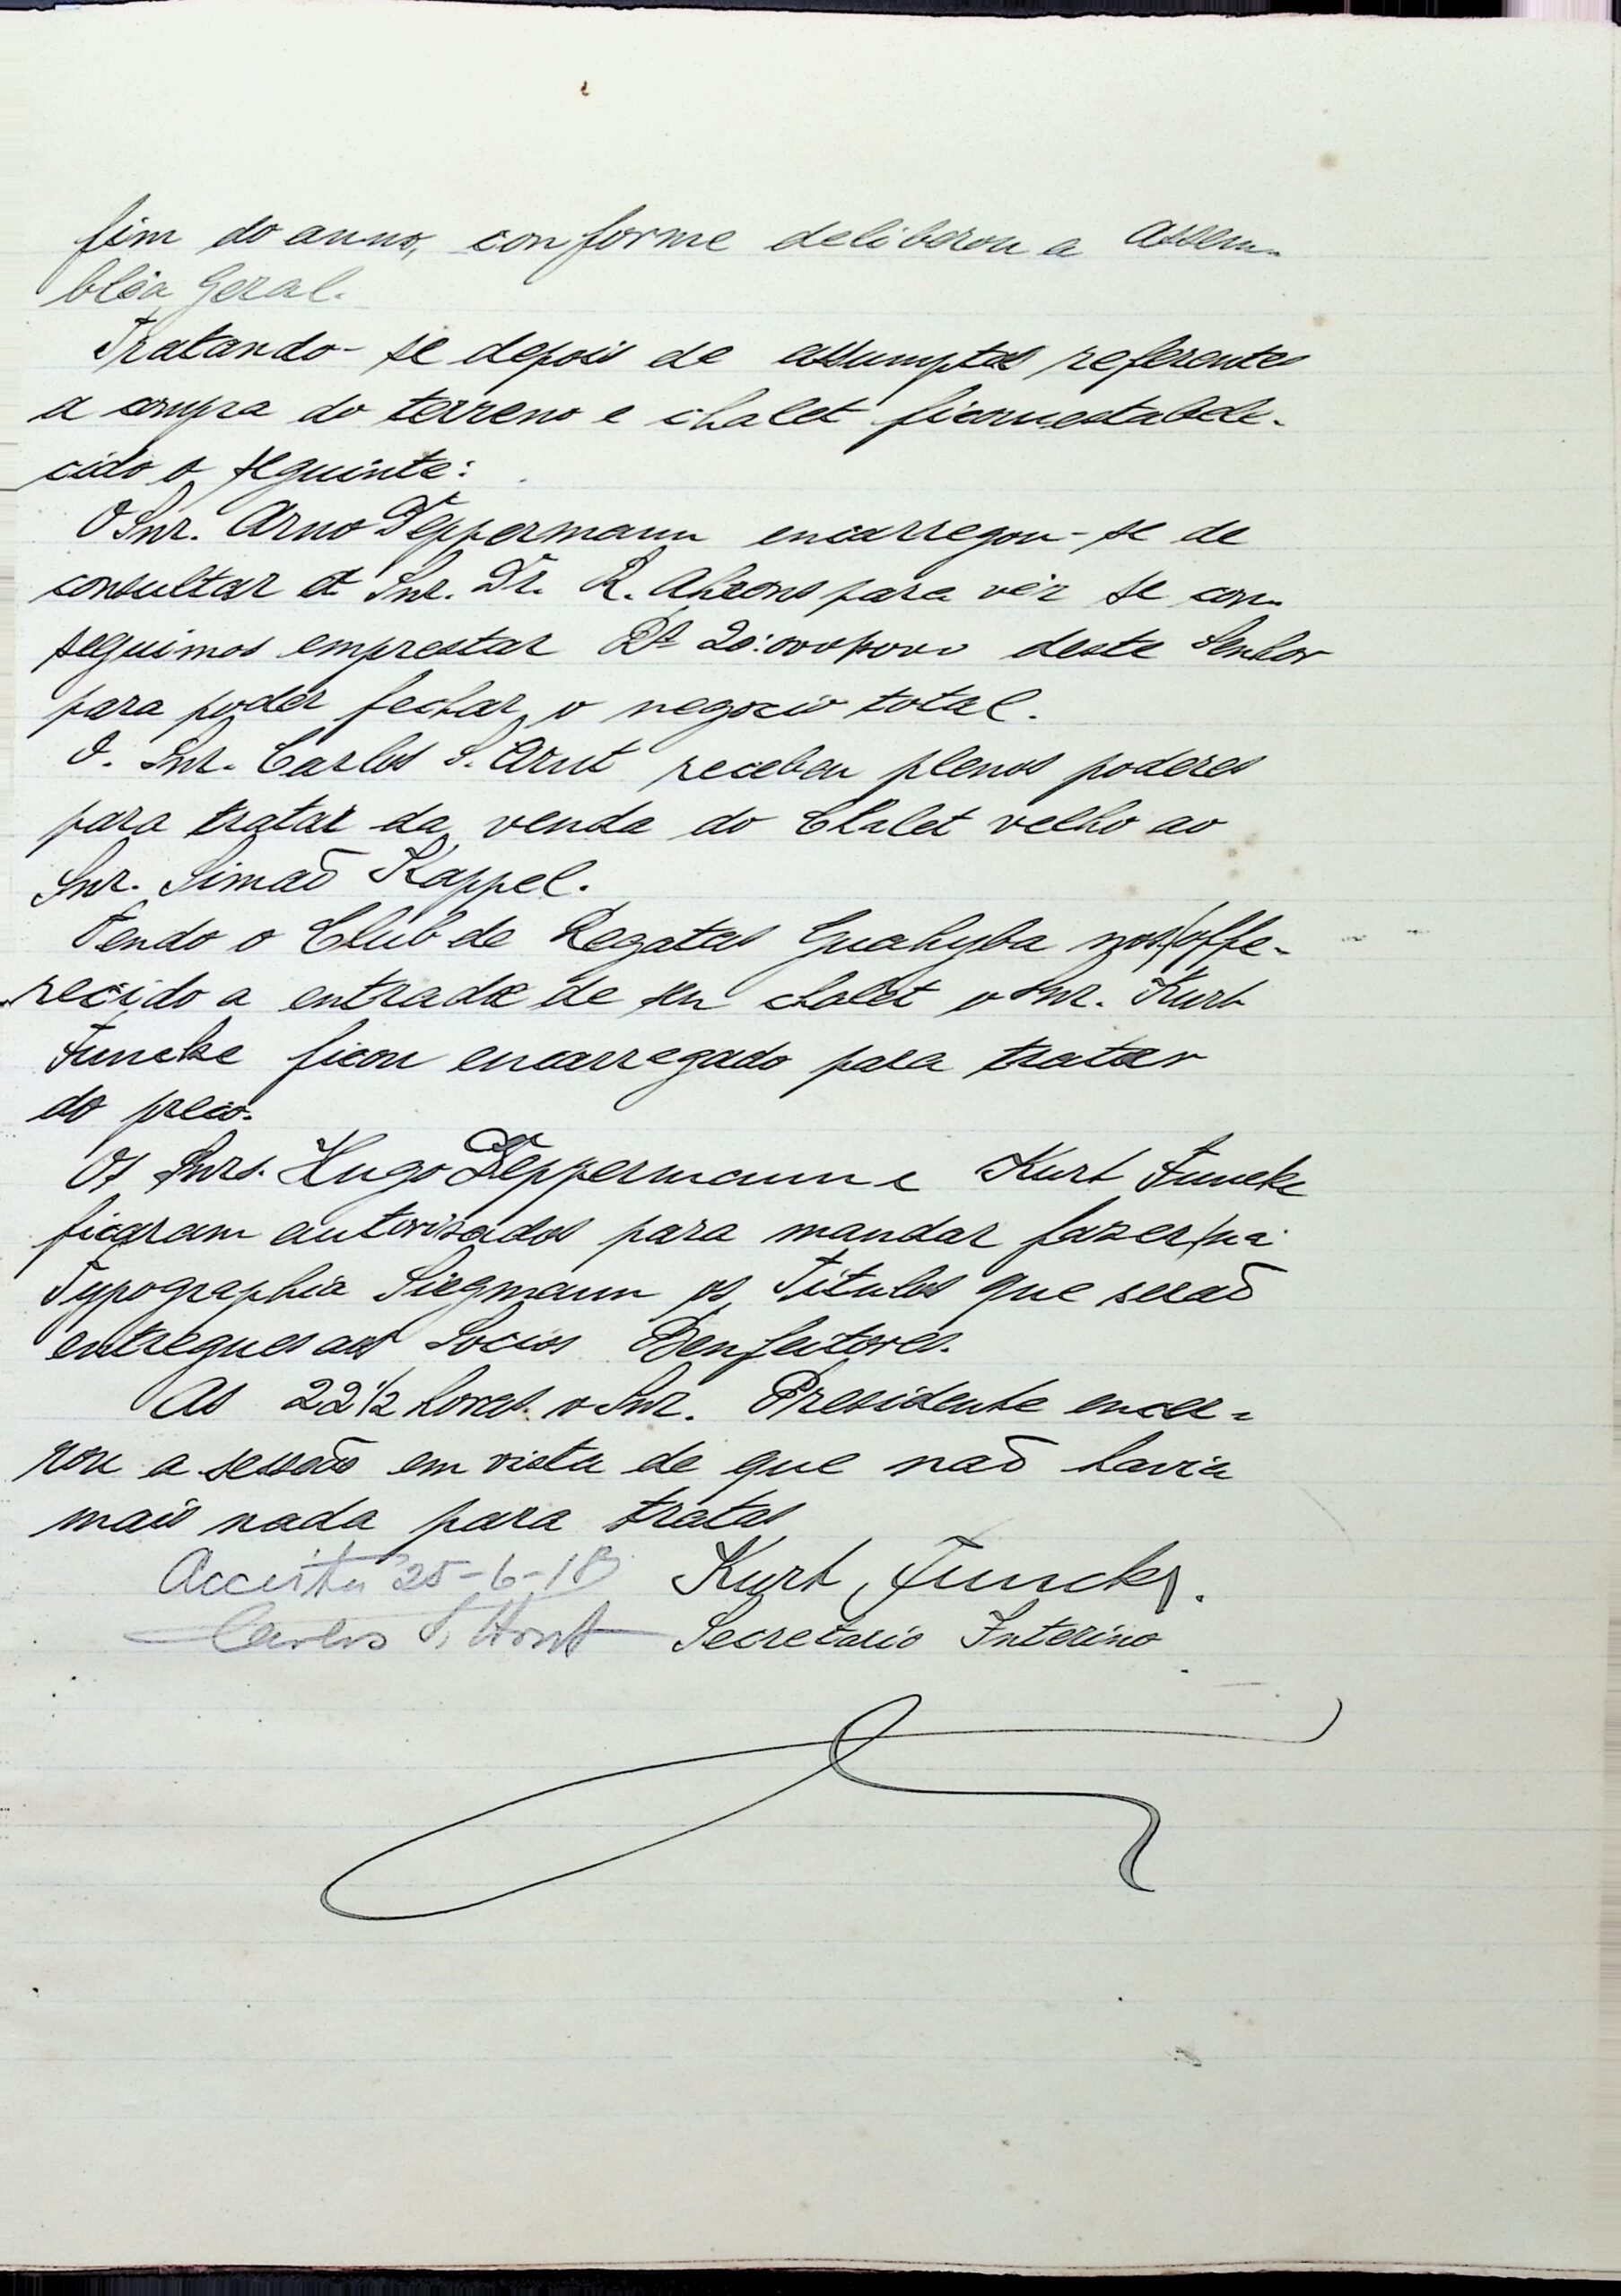 fim do anno, conforme deliberou a Assem-
bléa Geral.
Tratando-se depois de assumptos referentes
a compra do terreno e chalet ficou estabele-
cido o seguinte:
O Snr. Arno Deppermann encarregou-se de
consultar o Snr. Dr. R. Ahrons para vêr se con-
seguimos emprestar Rs 20:000$000 deste Senhor
para poder fechar o negocio total.
O. Snr. Carlos S. Arnt recebeu plenos poderes
para tratar da venda do Chalet velho ao
Snr. Simaõ Kappel.
Tendo o Club de Regatas Guahyba nos offe-
recido a entrada de seu chalet o Snr. Kurt
Funcke ficou encarregado para tratar
do preco.
Os Snrs. Hugo Deppermann e Kurt Funcke
ficaram autorisados para mandar fazer na
Typographia Siegmann os Titulos que seraõ
entregues aos Socios Benfeitores.
As 22 1/2 horas o Snr. Presidente encer-
rou a sessaõ em vista de que naõ havia
mais nada para tratar
Acceita 25-6-18 Kurt Funcke.
Carlos S. Arnt Secretario Interino